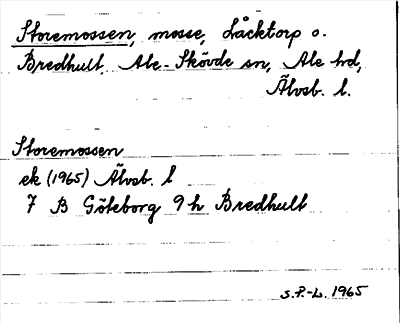 Storemossen, mosse, Låcktorp o.
Bredhult, Ale-Skövde sn, Ale hd,
Älvsb. l.
Storemossen
ek (1965) Älvsb. l
7 B Göteborg 9 h Bredhult
S.P.-L. 1965